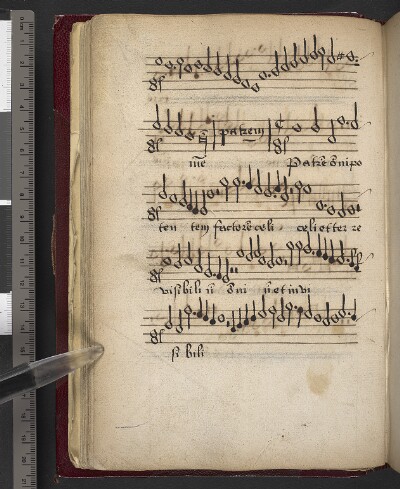 patrem
mē patrē õnipo
ten tem factorē celi celi et ter re
visibili ũ õni ũ et in vi
si bili